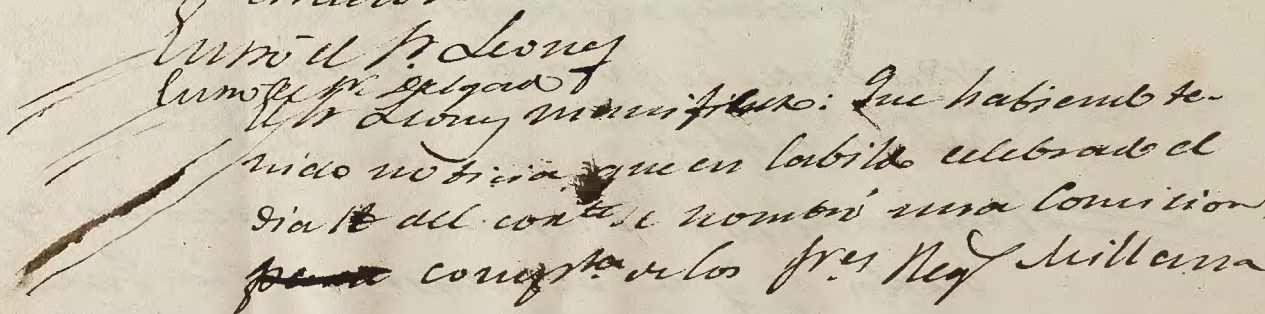 Entró el Sr Leones
Entró el Sr Delgado
El Sr Leones manifiesto: Que habiendo te-
nido noticia, que en Cabildo celebrado el
dia del conte se nombró una Comicion
compta de los Sres Millana